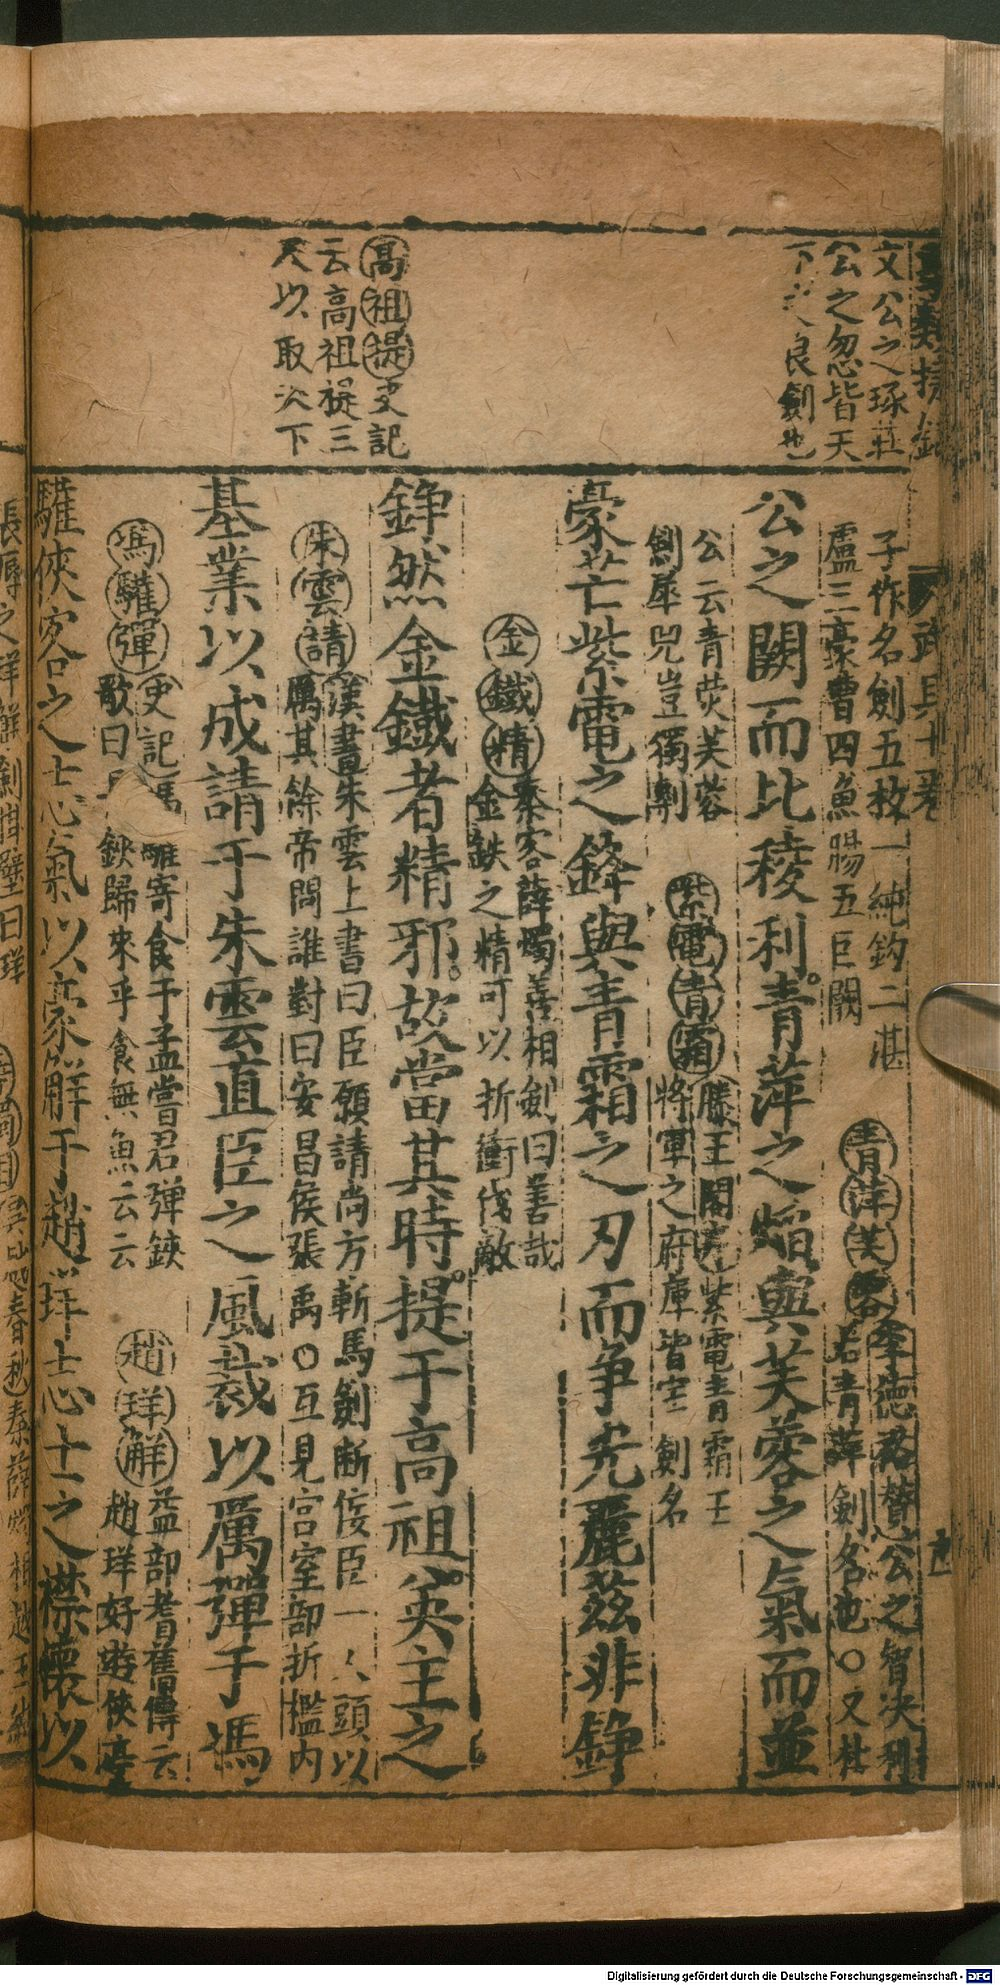 文公之琢莊
公之忽皆天
下之良劍也
高祖提史記
云高祖提三
尺以取天下
子作名劍五枚一純鈎二湛
盧三豪曹四魚腸五巨闕
青萍芙蓉
李德裕替公之智决利
若青萍劍名也〇又杜
公之闕而比稜利青萍之焰與芙蓉之氣而並
公云青熒芙蓉
劍犀兕豈獨剸
紫電青霜
滕王閣序紫電青霜王
將軍之府庫皆寶劍名
豪芒紫電之鋒與青霜之刃而争光麗茲非錚
金鐵精
秦客薛燭善相劍曰善哉
金鉄之精可以折衝伐敵
錚然金鐵者精邪故當其時提于高祖英主之
朱雲請
漢書朱雲上書曰臣願請尚方斬馬劍斷佞臣一人頭以
厲其餘帝問誰對曰安昌侯張禹〇互見宫室部折檻内
基業以成請于朱雲直臣之風裁以厲彈于馮
馮驩彈
史記馮驩寄食于孟嘗君彈鋏
歌曰長鋏歸來乎食無魚云云
趙珜解
益部耆舊傳云
趙珜好遊俠亭
驩俠客之士心氣以豪解于趙珜士心十之襟懷以
Digitalisierung gefördert durch die Deutsche Forschungsgemeinschaft - DFG